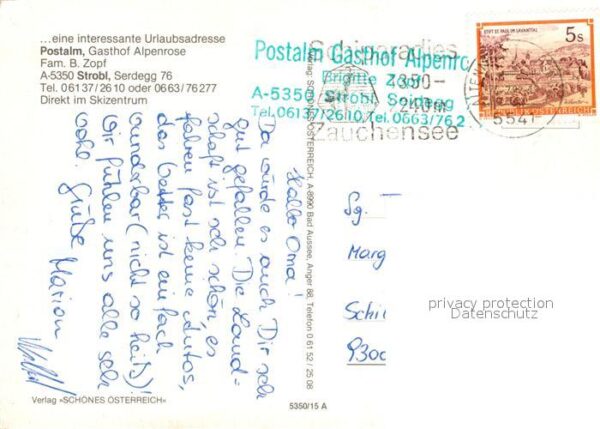 ...eine interessante Urlaubsadresse
Postalm, Gasthof Alpenrose
Fam. B. Zopf
A-5350 Strobl, Serdegg 76
Tel. 06137/2610 oder 0663/76277
Direkt im Skizentrum
Postalm Gasthof Alpenro
Brigitte Zopf
A-5350 Strobl, Serdegg
Tel. 06137/2610, Tel. 0663/762
Schiparadies
1350-
Zauchensee
5541
STIFT ST. PAUL IM LAVANTTAL
5 S
REPUBLIK ÖSTERREICH
Hallo Oma!
Da würde es auch Dir sehr
gut gefallen. Die Land-
schaft ist sehr schön, es
fahren fast keine Autos,
das Wetter ist einfach
wunderbar (nicht so heiß)!
Wir fühlen uns alle sehr
wohl. Grüße Marion
Verlag: SCHÖNES ÖSTERREICH, A-8990 Bad Aussee, Anger 88, Telefon 0 61 52 / 25 08
Sg.
Marg
Schi
930
privacy protection
Datenschutz
Verlag »SCHÖNES ÖSTERREICH«
5350/15 A